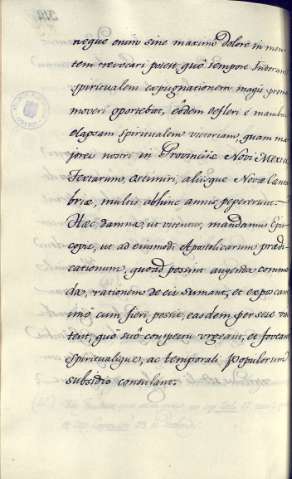 neque enim sine maximo dolore in men-
tem revocari potest, quo tempore Indorum
spiritualem expugnationem magis pro-
moveri oportebat, eodem nostris e manibus
elapsam spiritualem victoriam, quam ma-
jores nostri in Provinciis Novi Mexici
aliisque Novae Canta-
briae, multis abhinc annis pepererunt.
Haec damna, ut vitentur, mandamus Epis-
copis, ut ad ejusmodi Apostolicarum praedi-
cationum, quoad possint augenda commo-
da, rationem de eis sumant, et exposcant
imo, cum fieri possit, easdem per se se visi-
tent, quo suo conspectu urgeant, et foveant
spiritualique, ac temporali Populorum
subsidio consulant.